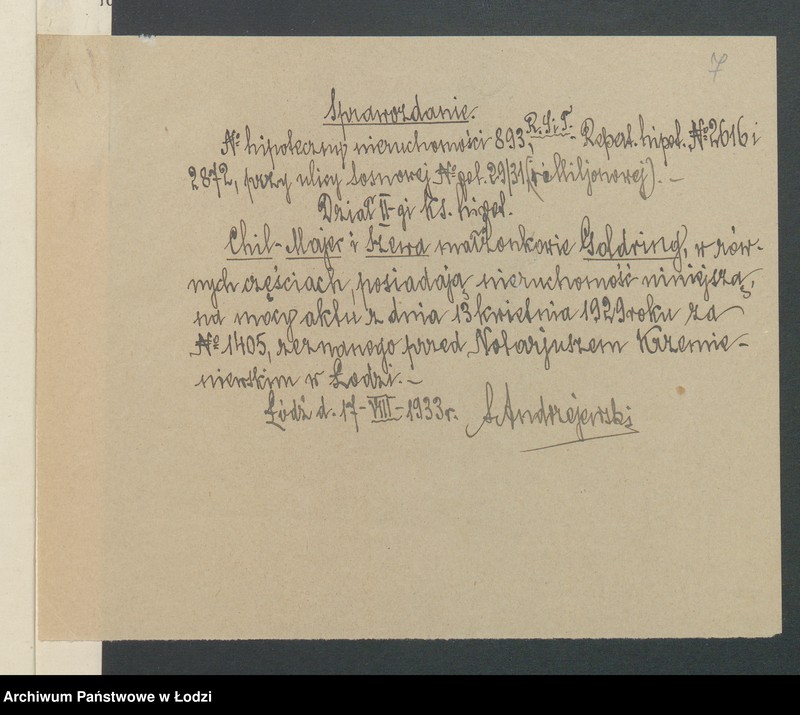 7
Sprawozdanie.
№ hipoteczny nieruchomości 893, R.S.i.T. - Repert. hipot. №2616 i
2872, przy ulicy Sosnowej № pol. 29/31 (i Miljonowej). –
Dział II-gi Ks. hipot.
Chil-Majer i Szewa małżonkowie Goldring, w rów-
nych częściach, posiadają nieruchomość niniejszą,
na mocy aktu z dnia 13 kwietnia 1929 roku za
№ 1405, zeznanego przed Notarjuszem Krzemie-
niewskim w Łodzi. –
Łódź d. 17-VIII-1933 r. S. Andrzejewski
Archiwum Państwowe w Łodzi